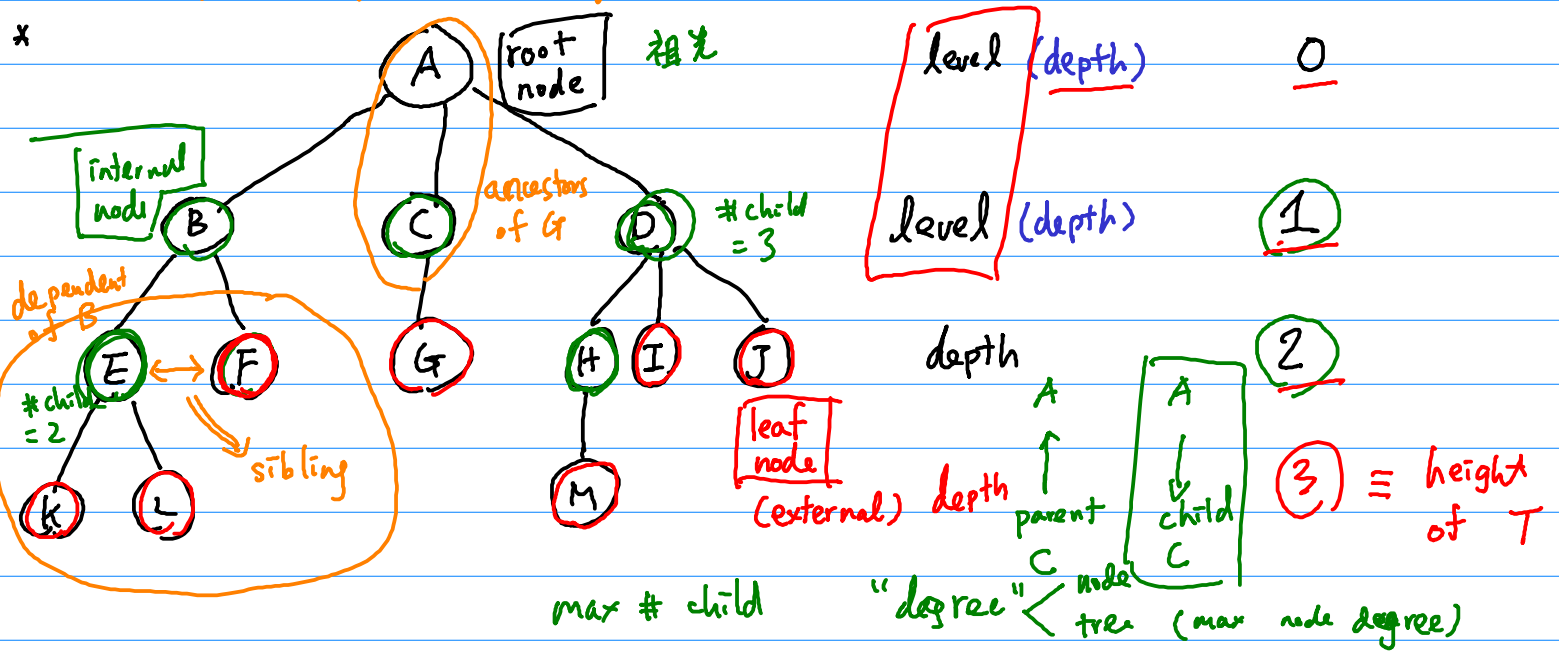 *
A
root
node
祖先
level (depth) 0
internal
node
B
C
ancestors
of G
D
#child
= 3
level (depth) 1
dependent
of B
E
F
G
H
I
J
depth 2
#child
= 2
sibling
leaf
node
(external)
K
L
M
depth
A
parent
C
A
child
C
3 ≡ height
of T
max # child
"degree" < node
tree (max node degree)